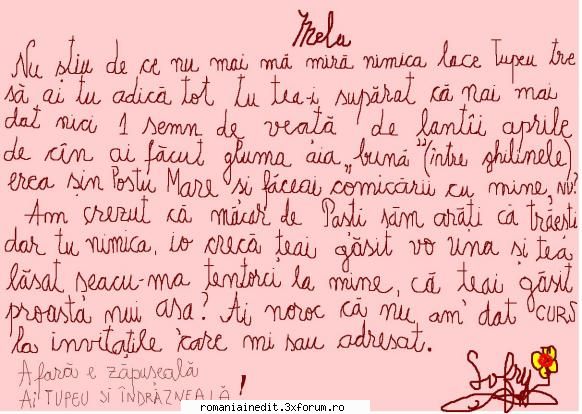 Melu
Nu știu de ce nu mai mă miră nimica lace Tupeu tre
să ai tu adică tot tu tea-i supărat că nai mai
dat nici 1 semn de veată de lantîi aprile
de cîn ai făcut gluma aia „bună” (între ghilinele)
erea șin Postu Mare si făceai comicării cu mine, NU?
Am crezut că măcar de Paști săm arăți că trăești
dar tu nimica, io crecă țeai găsit vo una și tea
lăsat seacu-ma tentorci la mine, că teai găsit
proastă nui asa? Ai noroc că nu am dat CURS
la invitațile care mi sau adresat.
Afară e zăpușeală
Ai TUPEU SI ÎNDRĂZNEALĂ !
Sofry
romaniainedit.3xforum.ro